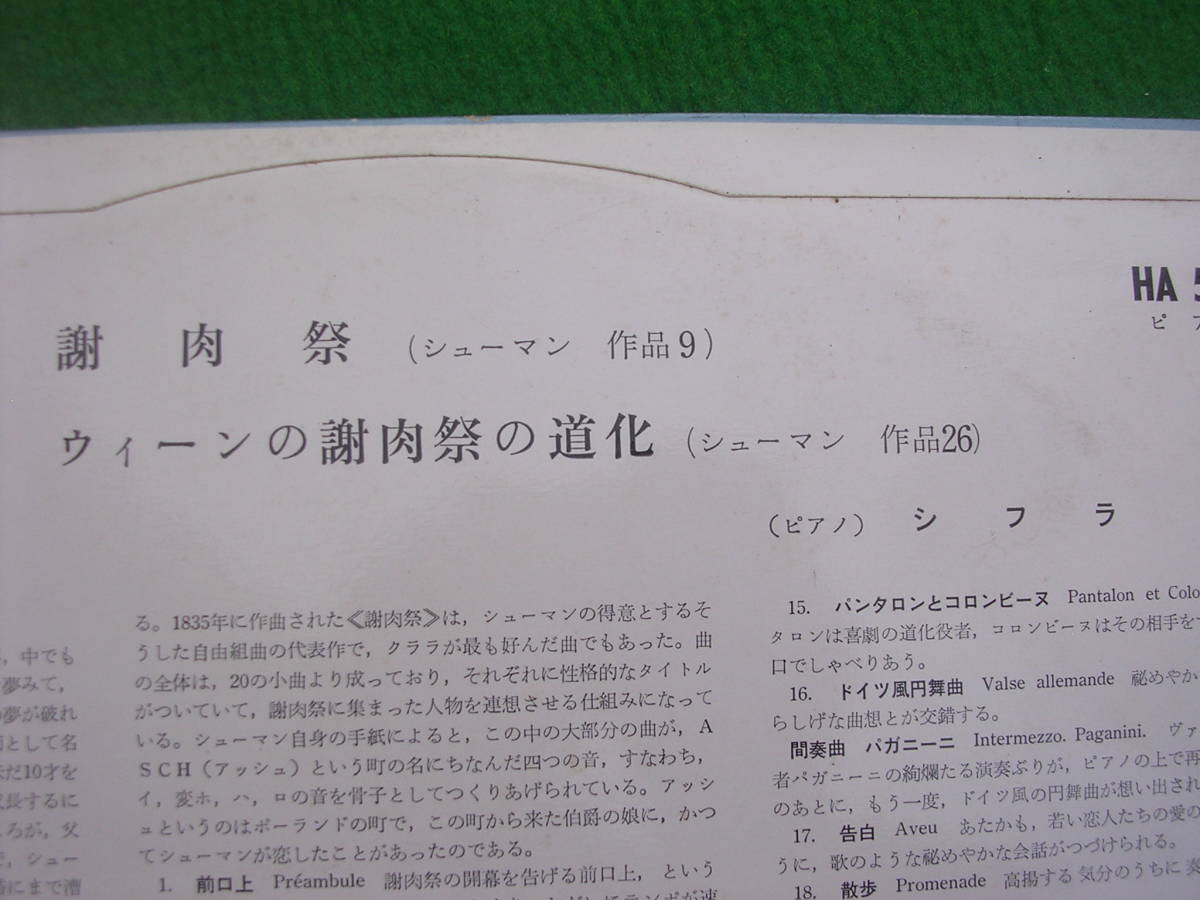 HA 5
ピア
謝肉祭 (シューマン 作品9)
ウィーンの謝肉祭の道化 (シューマン 作品26)
(ピアノ) シフラ
，中でも
夢みて，
の夢が破れ
として名
だ10才を
成長するに
ろが，父
，シュー
にまで漕
る。1835年に作曲された≪謝肉祭≫は，シューマンの得意とするそ
うした自由組曲の代表作で，クララが最も好んだ曲でもあった。曲
の全体は，20の小曲より成っており，それぞれに性格的なタイトル
がついていて，謝肉祭に集まった人物を連想させる仕組みになって
いる。シューマン自身の手紙によると，この中の大部分の曲が，A
SCH（アッシュ）という町の名にちなんだ四つの音，すなわち，
イ，変ホ，ハ，ロの音を骨子としてつくりあげられている。アッシ
ュというのはポーランドの町で，この町から来た伯爵の娘に，かつ
てシューマンが恋したことがあったのである。
1. 前口上 Préambule 謝肉祭の開幕を告げる前口上，という
15. パンタロンとコロンビーヌ Pantalon et Colo
タロンは喜劇の道化役者，コロンビーヌはその相手を
口でしゃべりあう。
16. ドイツ風円舞曲 Valse allemande 秘めやか
らしげな曲想とが交錯する。
間奏曲 パガニーニ Intermezzo. Paganini. ヴァ
者パガニーニの絢爛たる演奏ぶりが，ピアノの上で再
のあとに，もう一度，ドイツ風の円舞曲が想い出され
17. 告白 Aveu あたかも，若い恋人たちの愛の
うに，歌のような秘めやかな会話がつづけられる。
18. 散歩 Promenade 高揚する気分のうちに